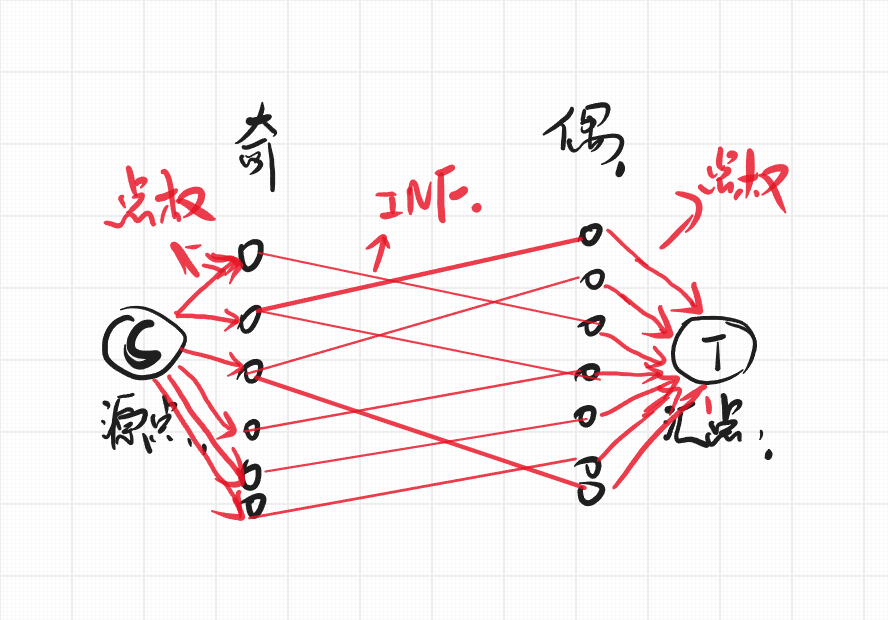 奇
偶
点权
INF.
点权
S
T
源点
汇点